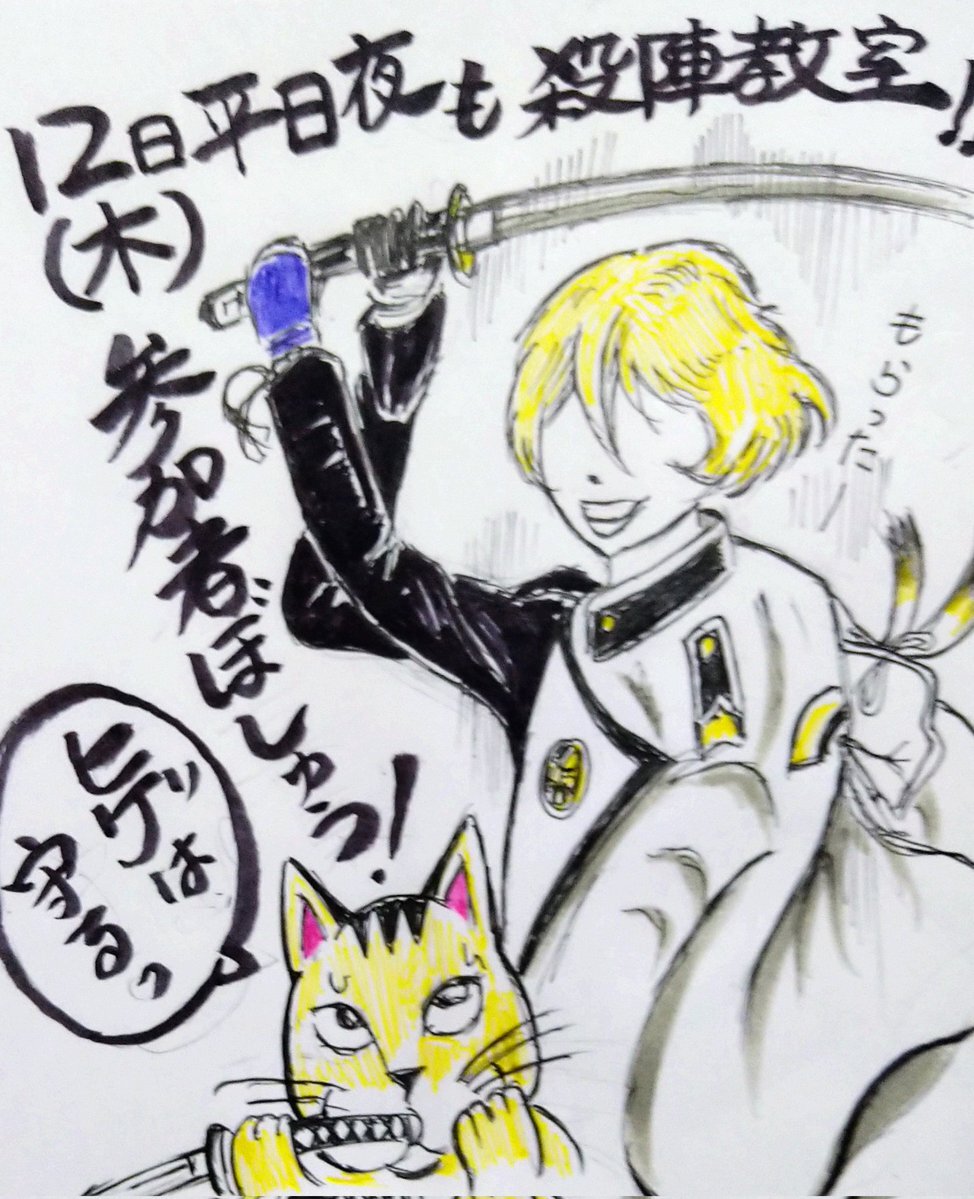 12日平日夜も殺陣教室!!
(木)
参加者ぼしゅう!
もらった!
ヒゲは
守るっ